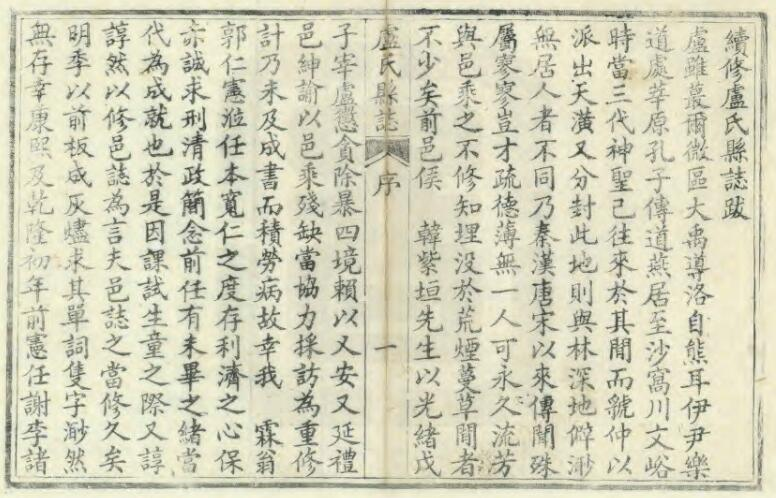 續修盧氏縣誌跋
盧雖蕞爾微區大禹導洛自熊耳伊尹樂
道處莘原孔子傳道燕居至沙窩川文峪
時當三代神聖已往來於其間而虢仲以
派出天潢又分封此地則與林深地僻渺
無居人者不同乃秦漢唐宋以來傳聞殊
屬寥寥豈才疏德薄無一人可永久流芳
與邑乘之不修知埋没於荒煙蔓草間者
不少矣前邑侯 韓紫垣先生以光緒戊
盧氏縣誌 序 一
子宰盧懲貪除暴四境賴以又安又延禮
邑紳諭以邑乘殘缺當協力採訪為重修
計乃未及成書而積勞病故幸我 霖翁
郭仁憲涖任本寬仁之度存利濟之心保
赤誠求刑清政簡念前任有未畢之緒當
代為成就也於是因課試生童之際又諄
諄然以修邑誌為言夫邑誌之當修久矣
明季以前板成灰燼求其單詞隻字渺然
無存幸康熙及乾隆初年前憲任謝李諸